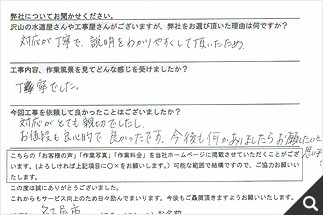 弊社についてお聞かせください。
沢山の水道屋さんや工事屋さんがございますが、弊社をお選び頂いた理由は何ですか?
対応が丁寧で、説明をわかりやすくして頂いたため
工事内容、作業風景を見てどんな感じを受けましたか?
丁寧でした。
今回工事を依頼して良かったことはございましたか?
対応がとても親切でしたし、
お値段も良心的で良かったです。今後も何かありましたらお願いしたいと思います
こちらの「お客様の声」「作業写真」「作業料金」を当社ホームページに掲載させていただくことがござ
います。(よろしければ上記項目に○×をお願いします。) 可能な範囲で結構ですので、ご協力お願いい
たします。
この度は誠にありがとうございました。
これからもサービス向上のため日々励んでまいります。今後もご贔屓頂きますようお願いいたします。
名古屋市